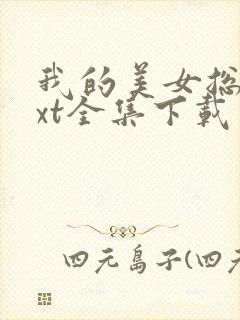 我的美女总
xt全集下载
四元岛子(四元